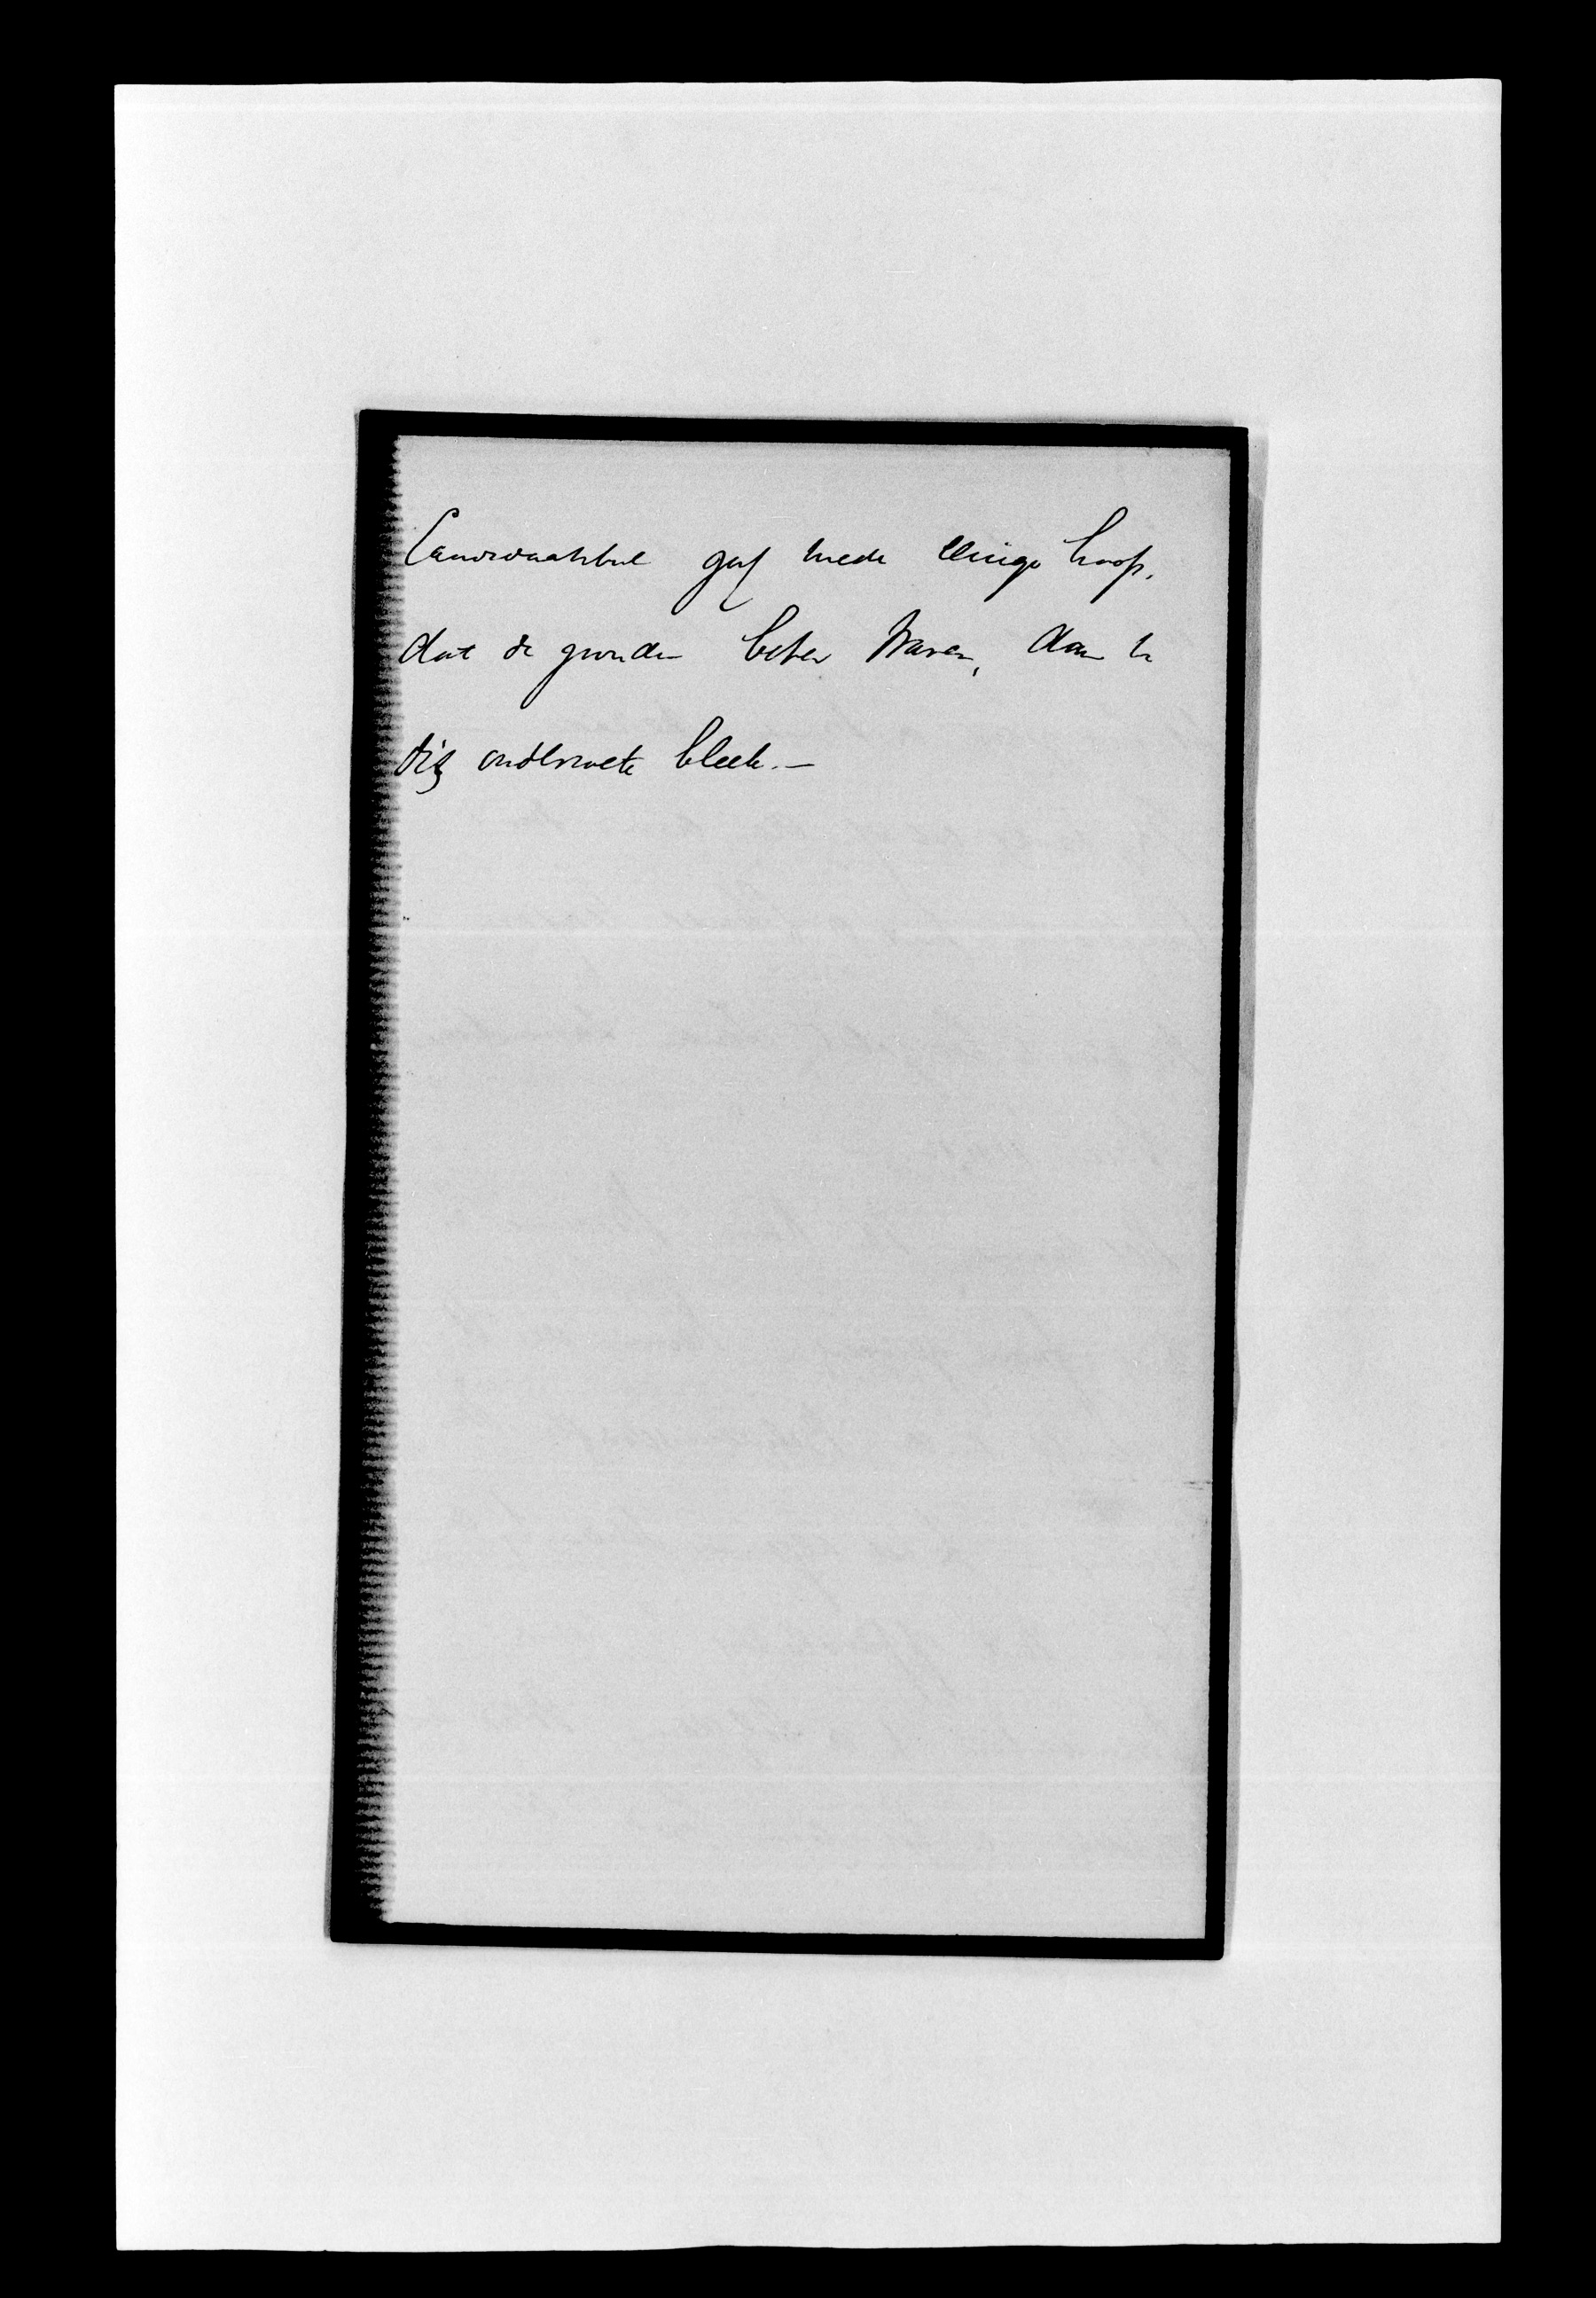 gaf mede eenige hoop,
dat de gronden beter waren, dan te
dis onderzoek bleek.—